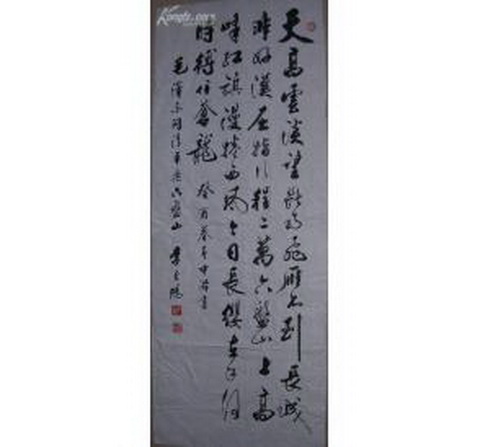 天高雲淡望斷南飛雁不到長城
非好漢屈指行程二萬六盤山上高
峰紅旗漫捲西風今日長纓在手何
時縛住蒼龍 癸酉
毛澤東詞清平樂六盤山 李
Kongfz.com